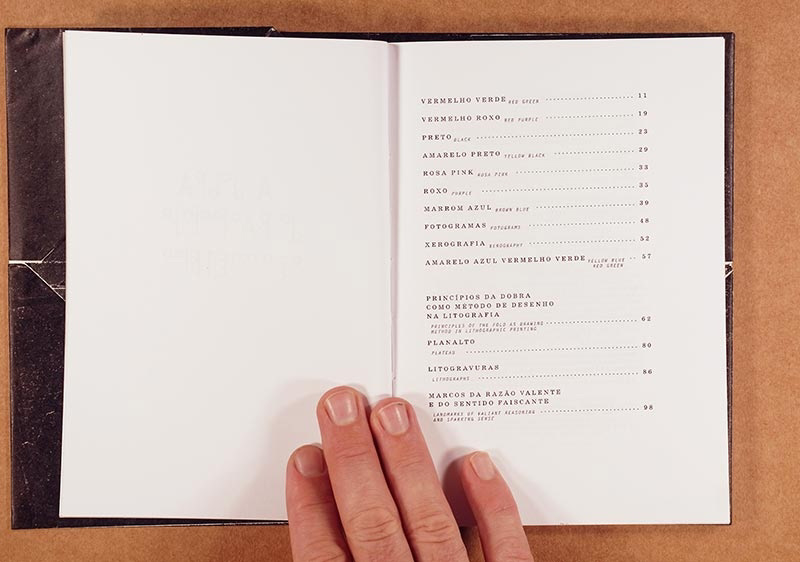 VERMELHO VERDE RED GREEN 11
VERMELHO ROXO RED PURPLE 19
PRETO BLACK 23
AMARELO PRETO YELLOW BLACK 29
ROSA PINK ROSA PINK 33
ROXO PURPLE 35
MARROM AZUL BROWN BLUE 39
FOTOGRAMAS FOTOGRAMS 48
XEROGRAFIA XEROGRAPHY 52
AMARELO AZUL VERMELHO VERDE YELLOW BLUE 57
RED GREEN
PRINCÍPIOS DA DOBRA
COMO MÉTODO DE DESENHO
NA LITOGRAFIA
PRINCIPLES OF THE FOLD AS DRAWING 62
METHOD IN LITHOGRAPHIC PRINTING
PLANALTO
PLATEAU 80
LITOGRAVURAS
LITHOGRAPHS 86
MARCOS DA RAZÃO VALENTE
E DO SENTIDO FAISCANTE
LANDMARKS OF VALIANT REASONING 98
AND SPARKING SENSE